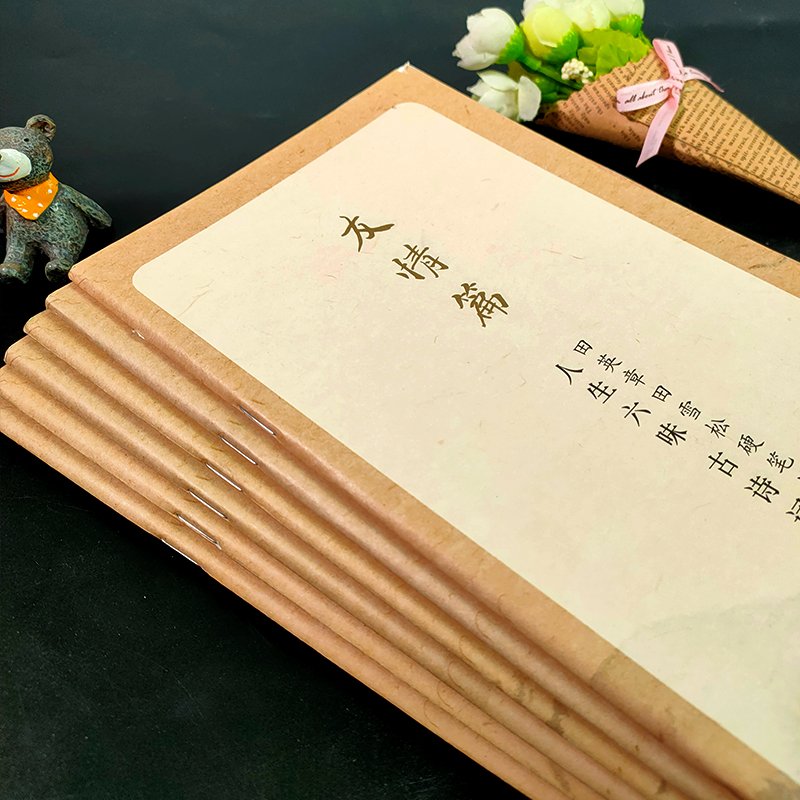 友情篇
田英章田雪松硬笔
人生六味古诗词
all about